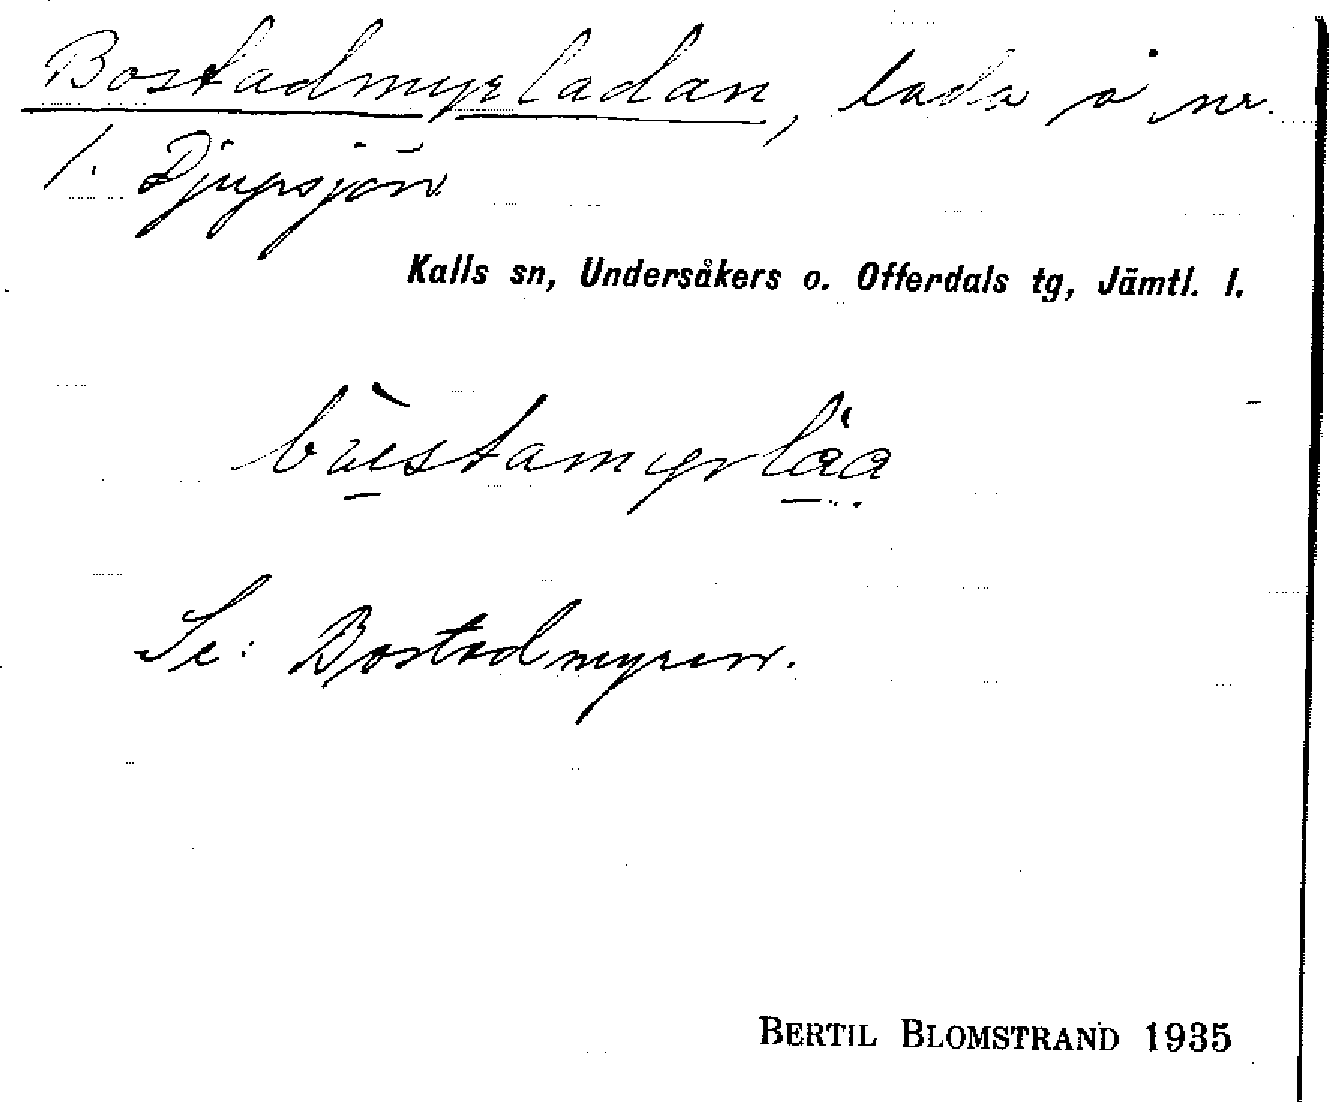 Bostadmyrladan, lada å nr.
1. Djupsjön
Kalls sn, Undersåkers o. Offerdals tg, Jämtl. l.
Se: Bostadmyren.
BERTIL BLOMSTRAND 1935